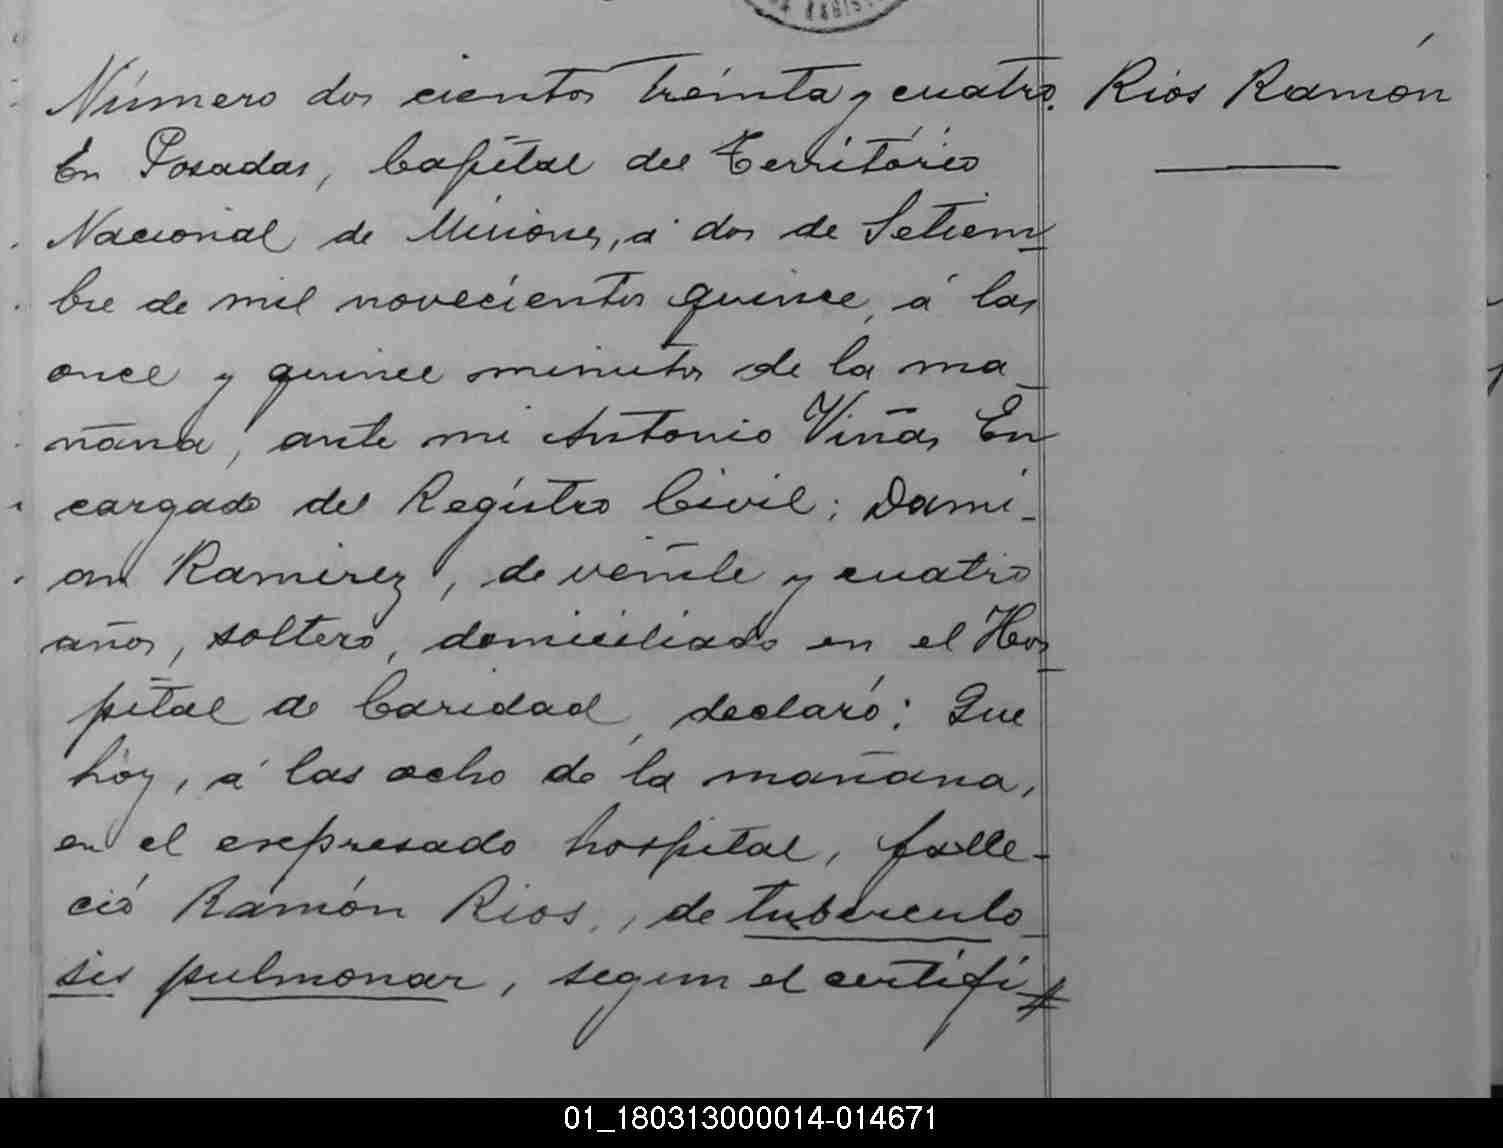 Número dos cientos treinta y cuatro.
Rios Ramón
En Posadas, Capital del Território
Nacional de Misiones, á dos de Setiem_
bre de mil novecientos quince, á las
once y quince minutos de la ma_
ñana, ante mi Antonio Viñas, En
cargado del Registro Civil; Dami_
an Ramirez, de veinte y cuatro
años, soltero, domiciliado en el Hos_
pital de Caridad, declaró: Que
hoy, á las ocho de la mañana,
en el expresado hospital, falle-
ció Ramón Rios, de tuberculo_
sis pulmonar, segun el certifi_
01_180313000014-014671